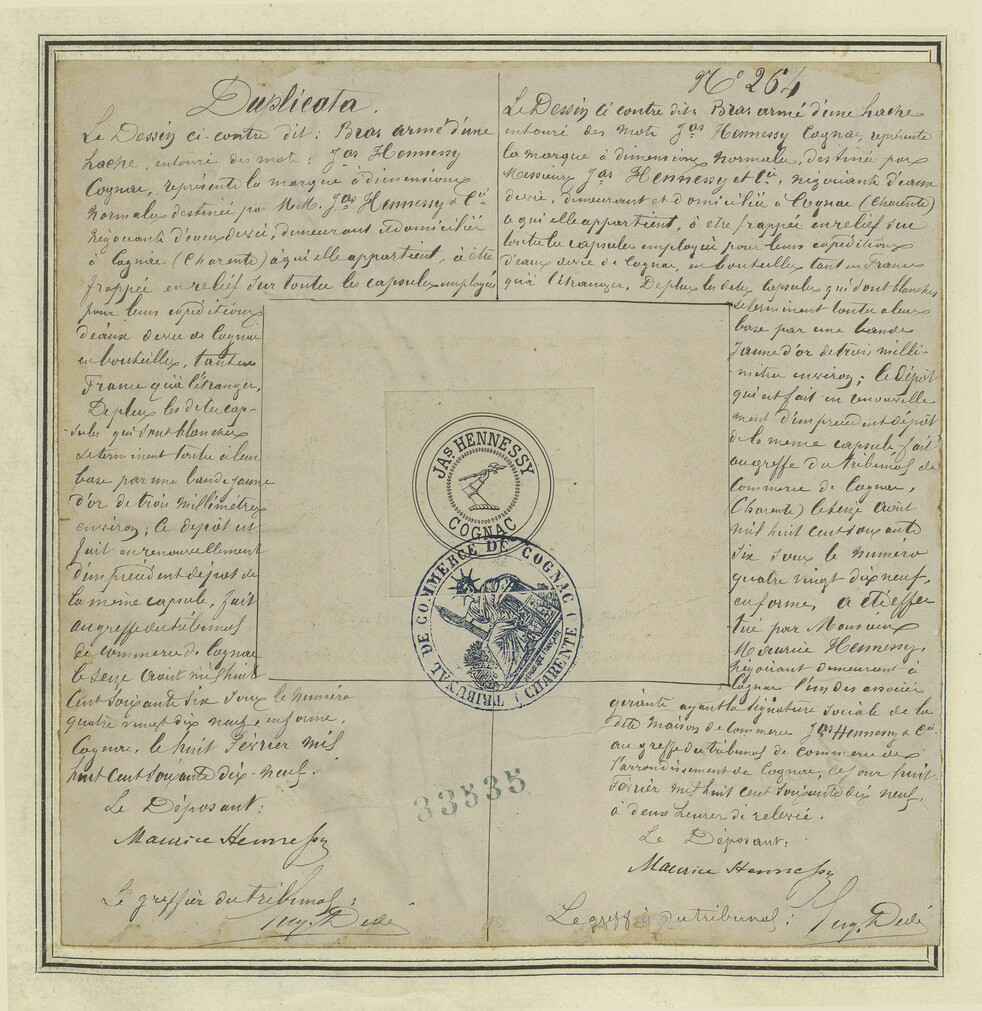 Duplicata.
Le Dessin ci-contre dit: Bras armé d'une
hache, entouré des mots: Jas Hennessy
Cognac, représente la marque à dimensions
normales destinée par MM. Jas Hennessy & Cie
négociants d'eaux de vie, demeurant et domiciliés
à Cognac (Charente) à qui elle appartient, à être
frappée en relief sur toutes les capsules employées
pour leurs expéditions
d'eaux de vie de Cognac
en bouteilles, tant en
France qu'à l'étranger,
De plus les dites cap-
sules qui sont blanches
se terminent toutes à leur
base par une bande jaune
d'or de trois millimètres
environ; Ce dépôt est
fait en renouvellement
d'un précédent dépôt de
la même capsule, fait
au greffe du tribunal
de commerce de Cognac
le seize Août mil huit
cent soixante six sous le numéro
quatre vingt dix neuf, en forme,
Cognac, le huit Février mil
huit cent soixante dix-neuf.
Le Déposant:
Maurice Hennessy
Le greffier du tribunal:
Eug. Dedé
No 264
Le Dessin ci contre dit: Bras armé d'une hache
entouré des mots Jas Hennessy Cognac, représente
la marque à dimensions normales, destinée par
Messieurs Jas Hennessy et Cie, négociants d'eaux
de vie, demeurant et domiciliés à Cognac (Charente)
à qui elle appartient, à être frappée en relief sur
toutes les capsules employées pour leurs expéditions
d'eaux de vie de Cognac, en bouteilles tant en France
qu'à l'étranger, De plus les dites capsules qui sont blanches
se terminent toutes à leur
base par une bande
jaune d'or de trois milli-
mètres environ; le dépôt
qui est fait en renouvelle
ment d'un précédent dépôt
de la même capsule, fait
au greffe du tribunal de
Commerce de Cognac,
(Charente) le seize Août
mil huit cent soixante
six sous le numéro
quatre vingt dix neuf,
en forme, a été effec
tué par Monsieur
Maurice Hennessy,
négociant demeurant à
Cognac l'un des associés
gérants ayant la signature sociale de la
dite maison de commerce Jas Hennessy & Cie
au greffe du tribunal de commerce de
l'arrondissement de Cognac, ce jour huit
Février mil huit cent soixante dix neuf,
à deux heures de relevée.
Le Déposant:
Maurice Hennessy
Le greffier du tribunal:
Eug. Dedé
JAS HENNESSY
COGNAC
TRIBUNAL DE COMMERCE DE COGNAC (CHARENTE)
REPUBLIQUE FRANÇAISE
33535